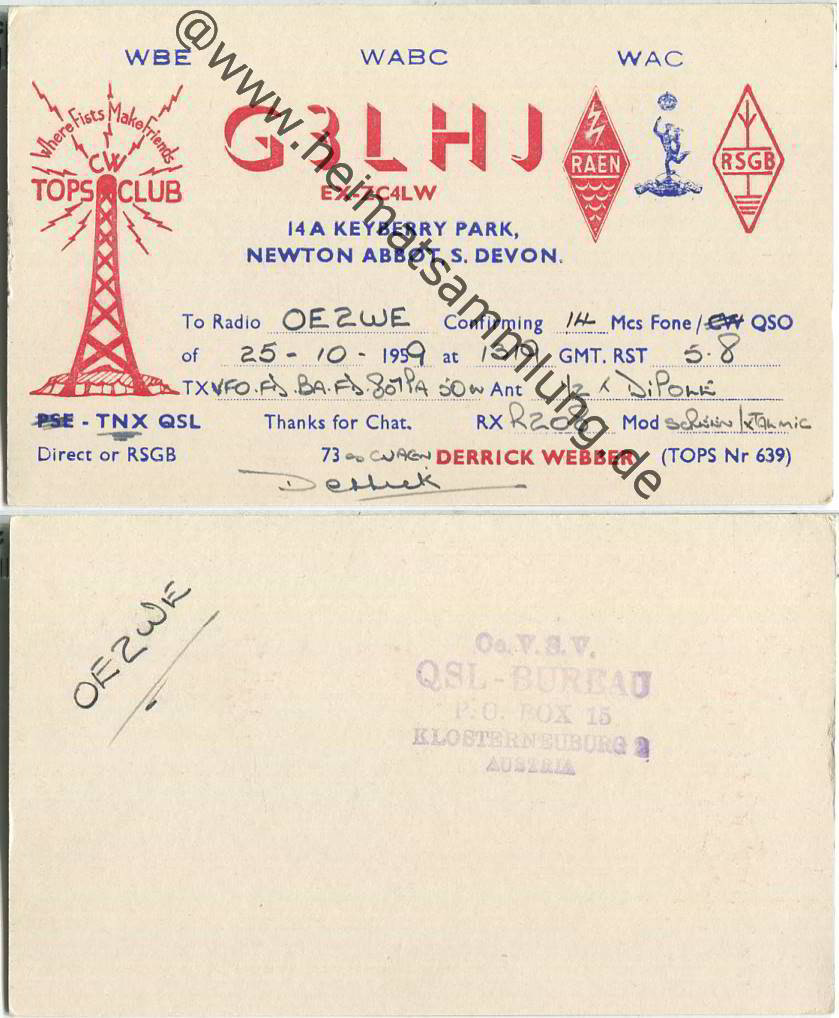 WBE WABC WAC
Where Fists Make Friends
CW
TOPS CLUB
G3LHJ
EX-ZC4LW
RAEN
RSGB
14A KEYBERRY PARK,
NEWTON ABBOT, S. DEVON.
To Radio OE2WE Confirming 14 Mcs Fone/CW QSO
of 25-10-1959 at 1319 GMT. RST 5.8
TX VFO.FD.BA.FD.807PA 50W Ant 1/2 λ DIPOLE
PSE - TNX QSL Thanks for Chat. RX R208 Mod SCREEN/XTAL MIC
Direct or RSGB 73 es CUAGN DERRICK WEBBER (TOPS Nr 639)
Derrick
@www.heimatsammlung.de
OE2WE
Oe.V.S.V.
QSL-BUREAU
P.O. BOX 15
KLOSTERNEUBURG 2
AUSTRIA